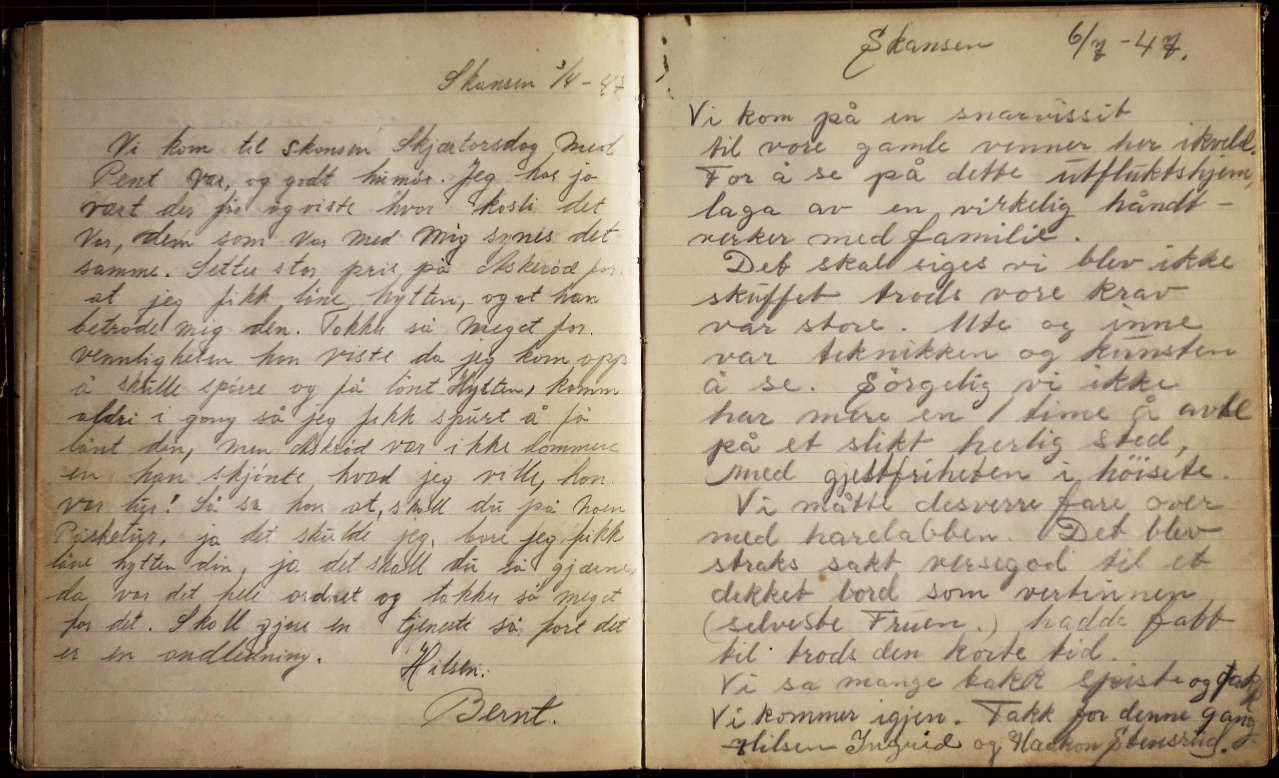 Skansen 3/4 - 47
Vi kom til Skansen Skjærtorsdag, med
Pent vær, og godt humør. Jeg har jo
vært der før og viste hvor kosli det
var, dem som var med mig synes det
samme. Setter stor pris på Askerød for
at jeg fikk låne hytten, og at han
betrode mig den. Takker så meget for
vennligheten han viste da jeg kom opp
å skulle spørre og få lånt Hytten, komm
aldri i gang så jeg fekk spurt å få
lånt den, men Askrød var ikke dommere
en han skjønte hvad jeg ville, han
var lur! Så sa han at, skall du på noen
Påsketur, ja det skulde jeg, bare jeg fikk
låne hytten din, ja det skall du så gjærne
da var det hele ordnet og takker så meget
for det. Skall gjøre en tjeneste så fort det
er en andledning.
Hilsen.
Bernt.
Skansen 6/7 - 47.
Vi kom på en snarvissit
til vore gamle venner her ikveld.
For å se på dette utfluktshjem,
laga av en virkelig håndt-
verker med familie.
Det skal siges vi blev ikke
skuffet trods vore krav
var store. Ute og inne
var teknikken og kunsten
å se. Sørgelig vi ikke
har mere en 1 time å avse
på et slikt herlig sted,
med gjestfriheten i höisete.
Vi måtte desverre fare over
med harelabben. Det blev
straks sakt versegod til et
dekket bord som vertinnen
(selveste Fruen.) hadde fått
til trods den korte tid.
Vi sa mange takk spiste og drakk
Vi kommer igjen. Takk for denne gang
Hilsen Ingrid og Haakon Stensrud.